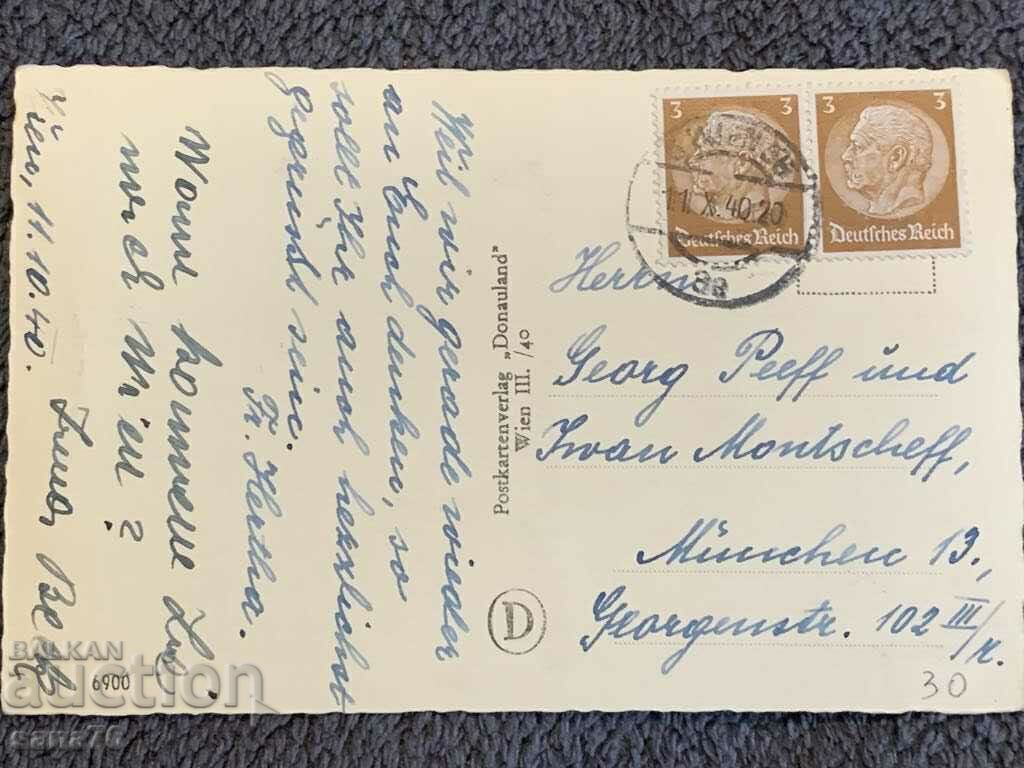 Wien, 11.10.40.
Weil wir gerade wieder
an Euch denken, so
sollt Ihr auch herzlichst
gegrüsst sein.
Fr. Hertha.
Wann kommen
nach Wien?
Postkartenverlag „Donauland"
Wien III. /40
D
6900
3 3
Deutsches Reich
3 3
Deutsches Reich
11.X.40.20
aa
Herrn
Georg Peeff und
Iwan Montscheff,
München 13,
Georgenstr. 102 III/r.
30
BALKAN
auction
sana76